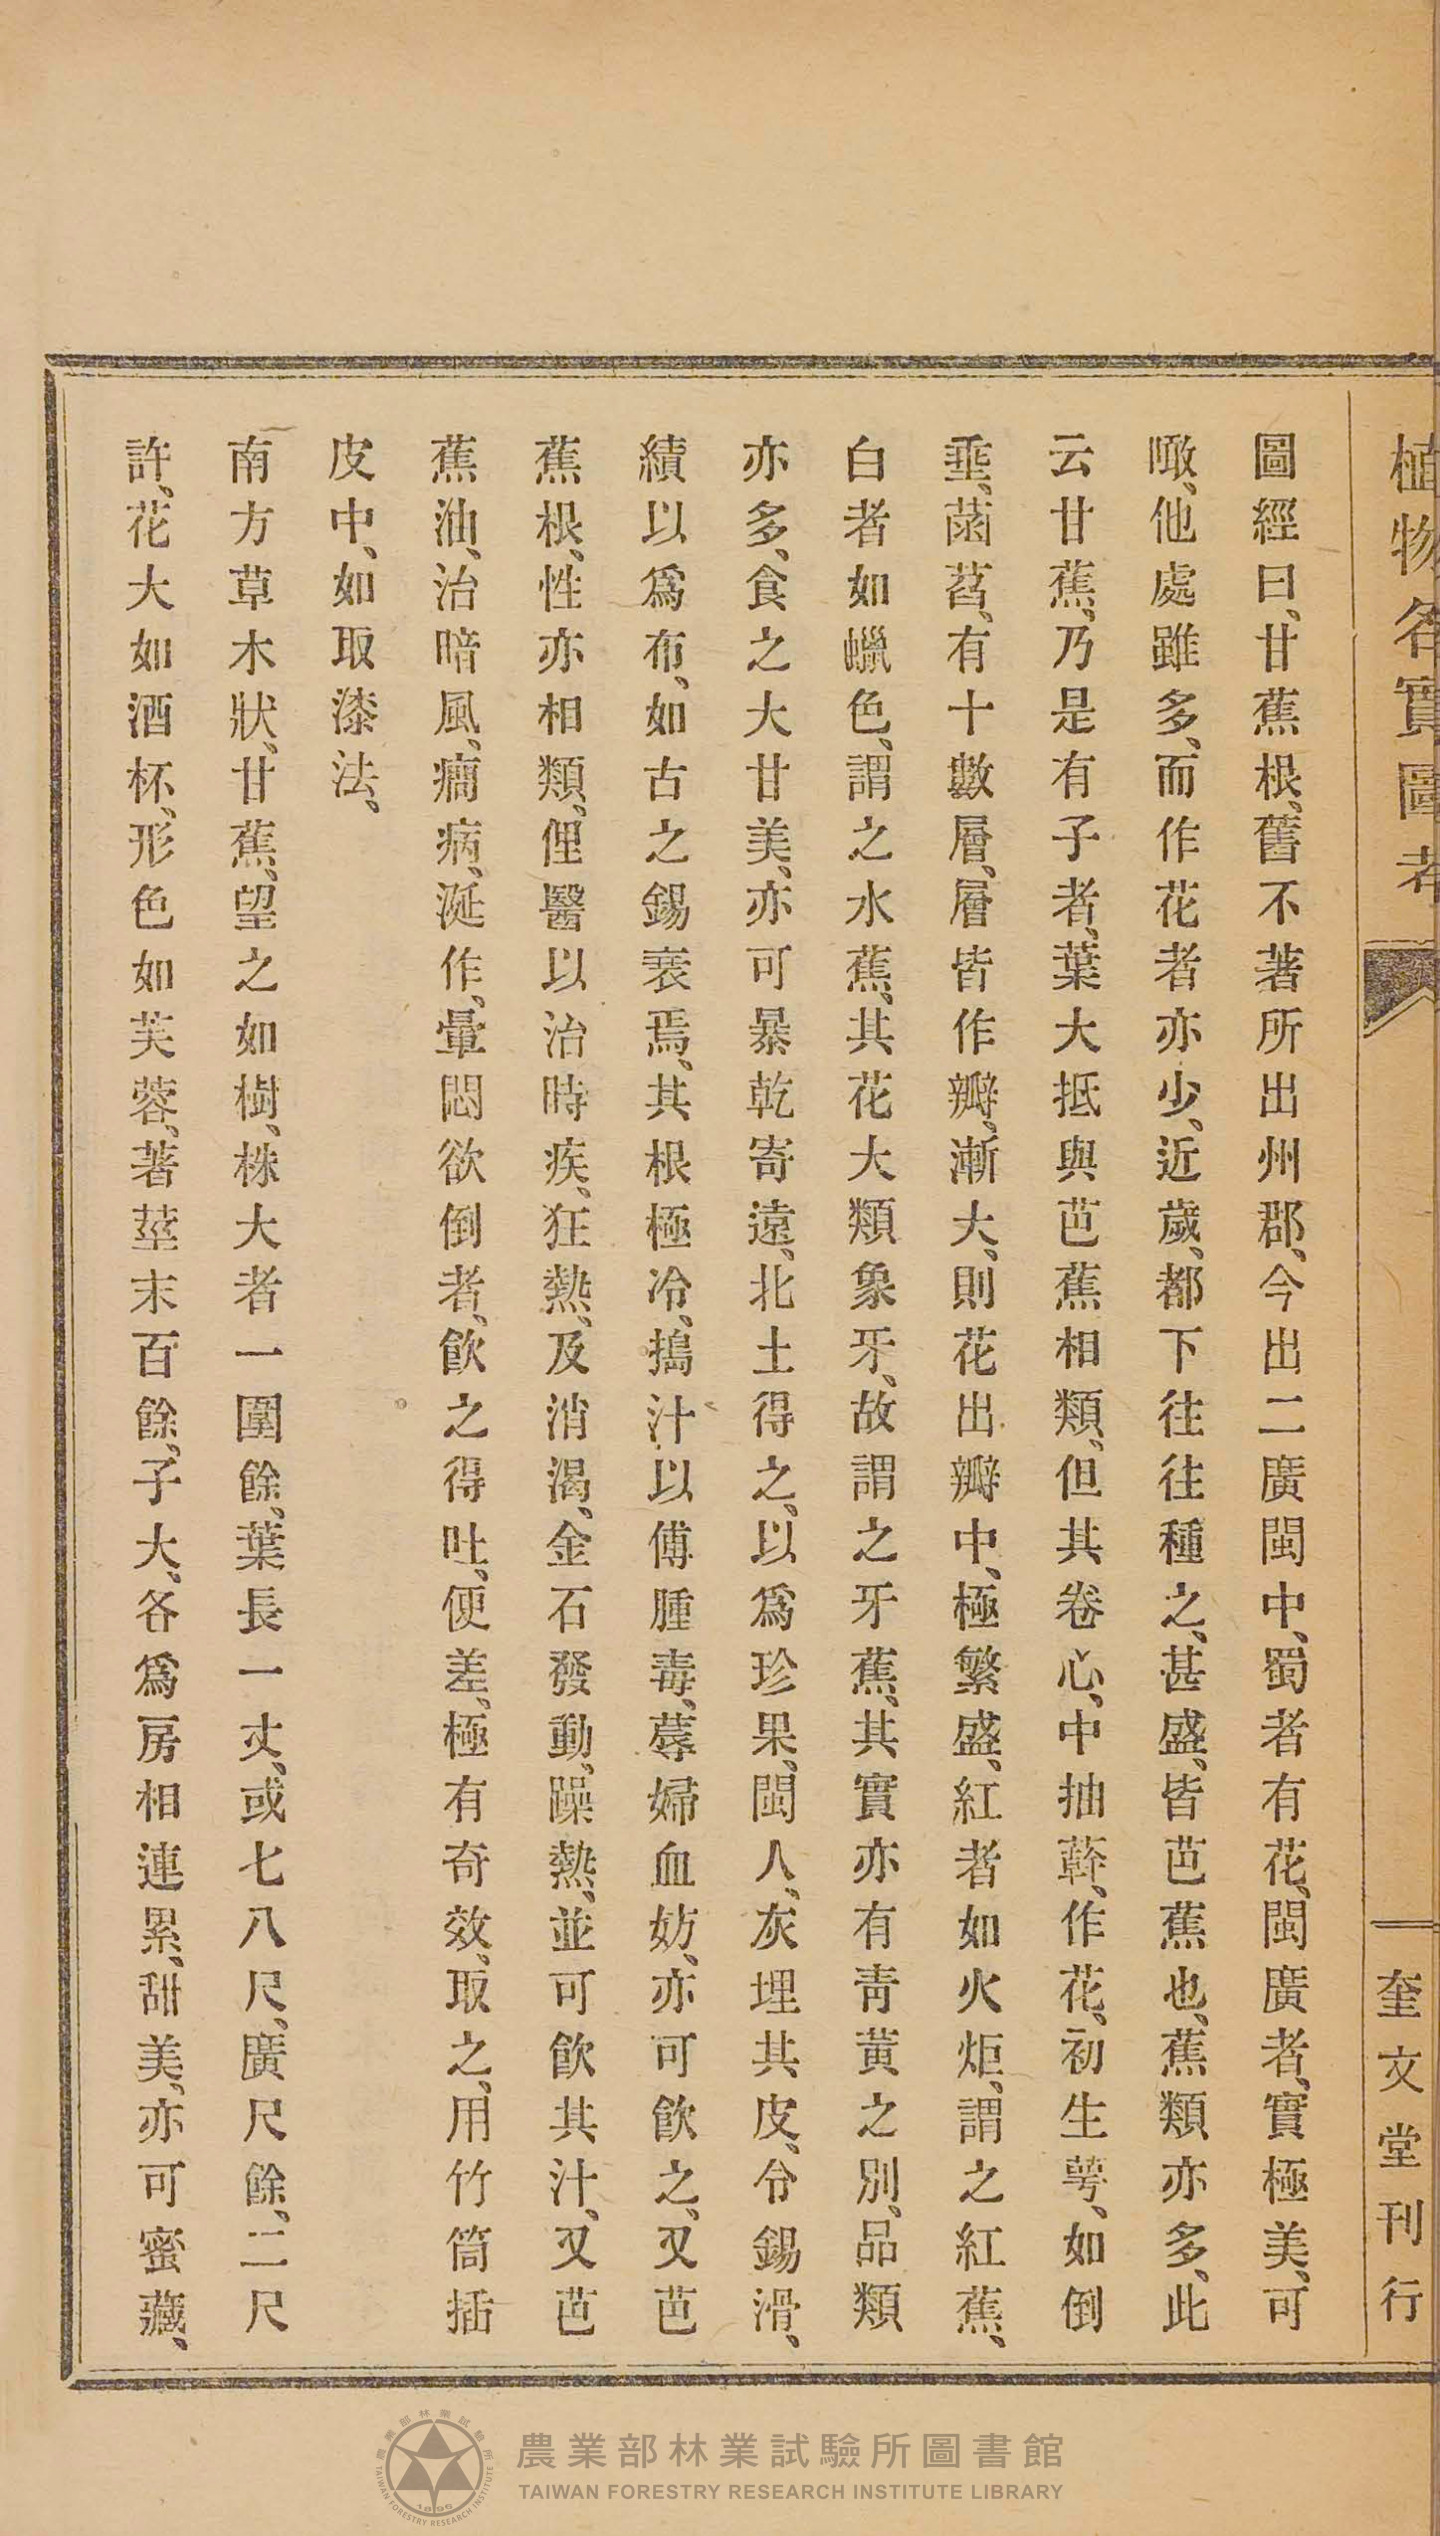 植物名實圖考
奎文堂刊行
圖經曰、甘蕉根、舊不著所出州郡、今出二廣閩中、蜀者有花、閩廣者、實極美、可
噉、他處雖多、而作花者亦少、近歲、都下往往種之、甚盛、皆芭蕉也、蕉類亦多、此
云甘蕉、乃是有子者、葉大抵與芭蕉相類、但其卷心、中抽簳、作花、初生萼、如倒
垂、菡萏、有十數層、層皆作瓣、漸大、則花出瓣中、極繁盛、紅者如火炬、謂之紅蕉、
白者如蠟色、謂之水蕉、其花大類象牙、故謂之牙蕉、其實亦有靑黃之別、品類
亦多、食之大甘美、亦可暴乾寄遠、北土得之、以爲珍果、閩人、灰埋其皮、令錫滑、
績以爲布、如古之錫衰焉、其根極冷、搗汁以傅腫毒、蓐婦血妨、亦可飮之、又芭
蕉根、性亦相類、俚醫以治時疾、狂熱、及消渴、金石發動、躁熱、並可飮其汁、又芭
蕉油、治暗風、癇病、涎作、暈悶欲倒者、飮之得吐、便差、極有奇效、取之、用竹筒插
皮中、如取漆法、
南方草木狀、甘蕉、望之如樹、株大者一圍餘、葉長一丈、或七八尺、廣尺餘、二尺
許、花大如酒杯、形色如芙蓉、著莖末百餘、子大、各爲房相連累、甜美、亦可蜜藏、
農業部林業試驗所圖書館
TAIWAN FORESTRY RESEARCH INSTITUTE LIBRARY
農業部林業試驗所
TAIWAN FORESTRY RESEARCH INSTITUTE
1895